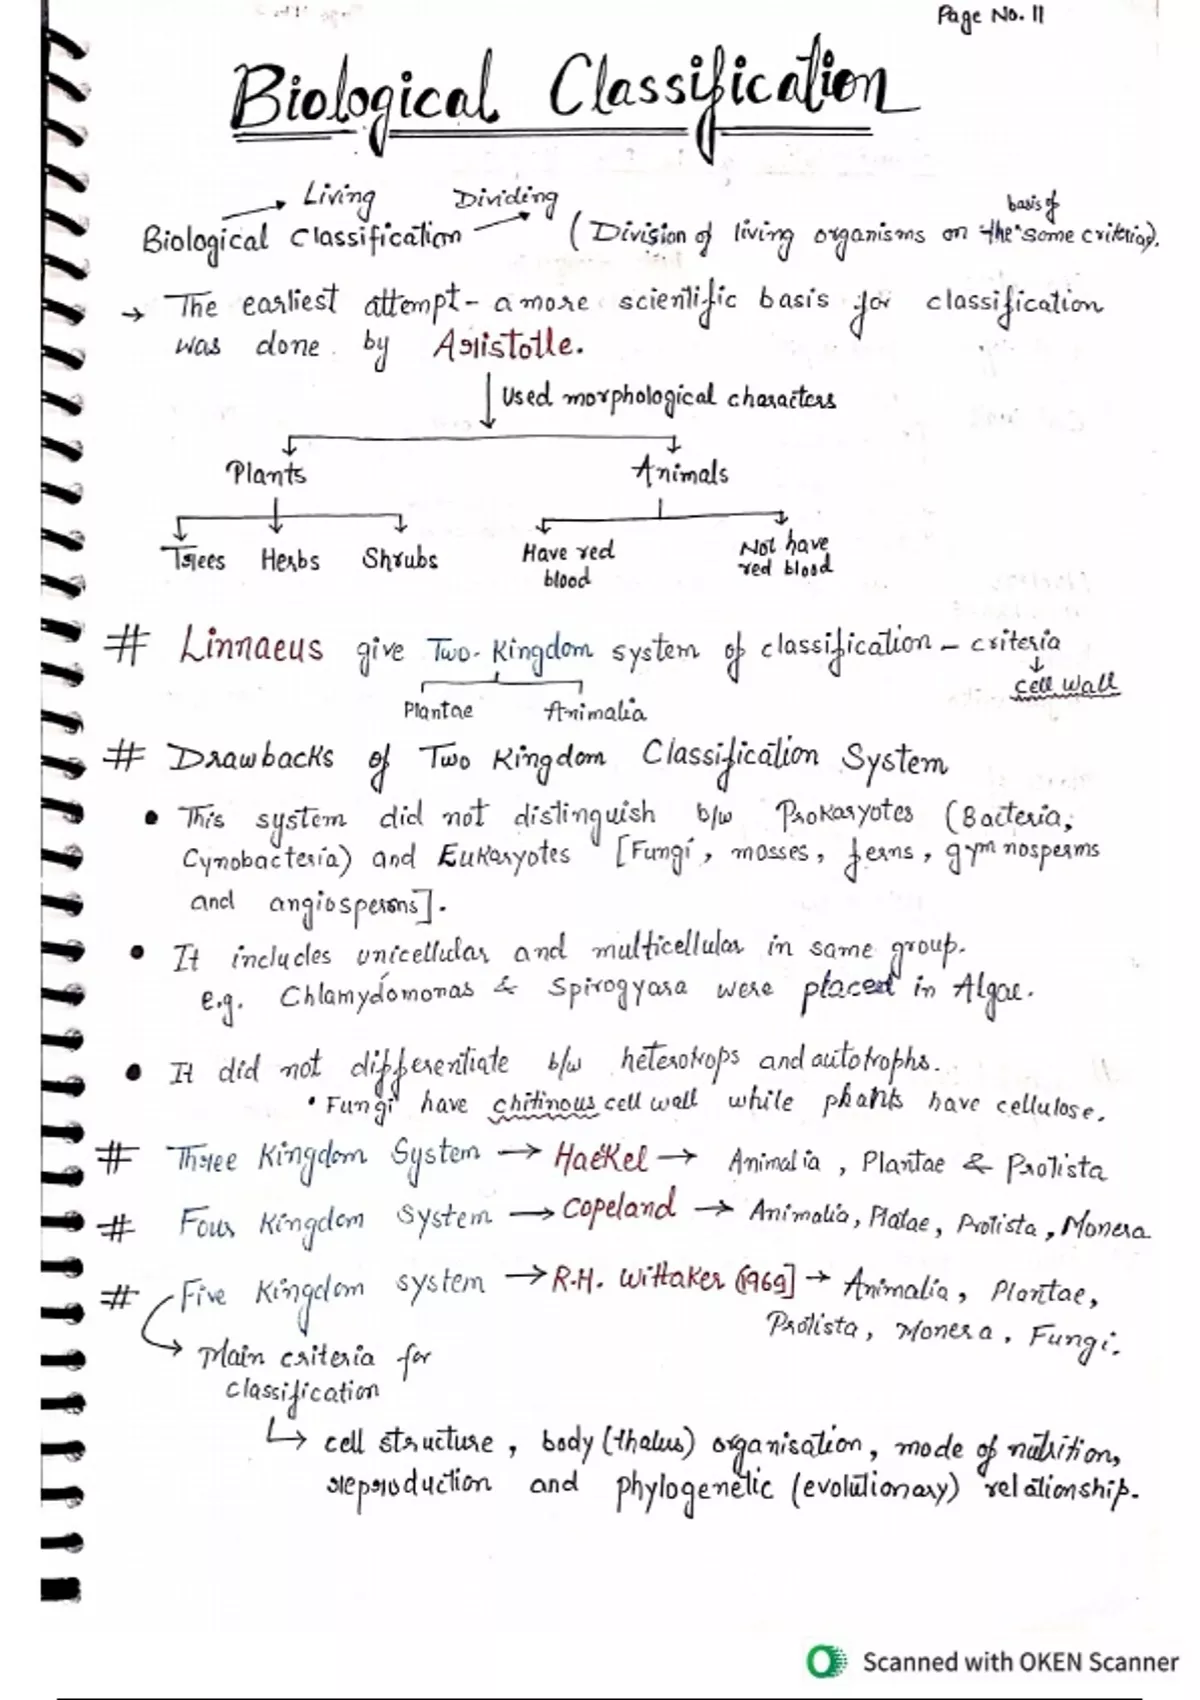 Page No. 11
Biological Classification
Living Dividing
Biological Classification (Division of living organisms on the basis of some criteria).
→ The earliest attempt - a more scientific basis for classification
was done by Aristotle.
Used morphological characters
Plants Animals
Trees Herbs Shrubs Have red blood Not have red blood
# Linnaeus give Two-Kingdom system of classification - criteria
cell wall
Plantae Animalia
# Drawbacks of Two Kingdom Classification System
• This system did not distinguish b/w Prokaryotes (Bacteria,
Cynobacteria) and Eukaryotes [Fungi, mosses, ferns, gymnosperms
and angiosperms].
• It includes unicellular and multicellular in same group.
e.g. Chlamydomonas & Spirogyara were placed in Algae.
• It did not differentiate b/w heterotrops and autotrophs.
• Fungi have chitinous cell wall while phants have cellulose.
# Three Kingdom System → Haekel → Animalia, Plantae & Protista
# Four Kingdom System → Copeland → Animalia, Platae, Protista, Monera
# Five Kingdom system → R.H. Wittaker (1969] → Animalia, Plantae,
Protista, Monera, Fungi.
Main criteria for
classification
cell structure, body (thalus) organisation, mode of nutrition,
reproduction and phylogenetic (evolutionary) relationship.
Scanned with OKEN Scanner